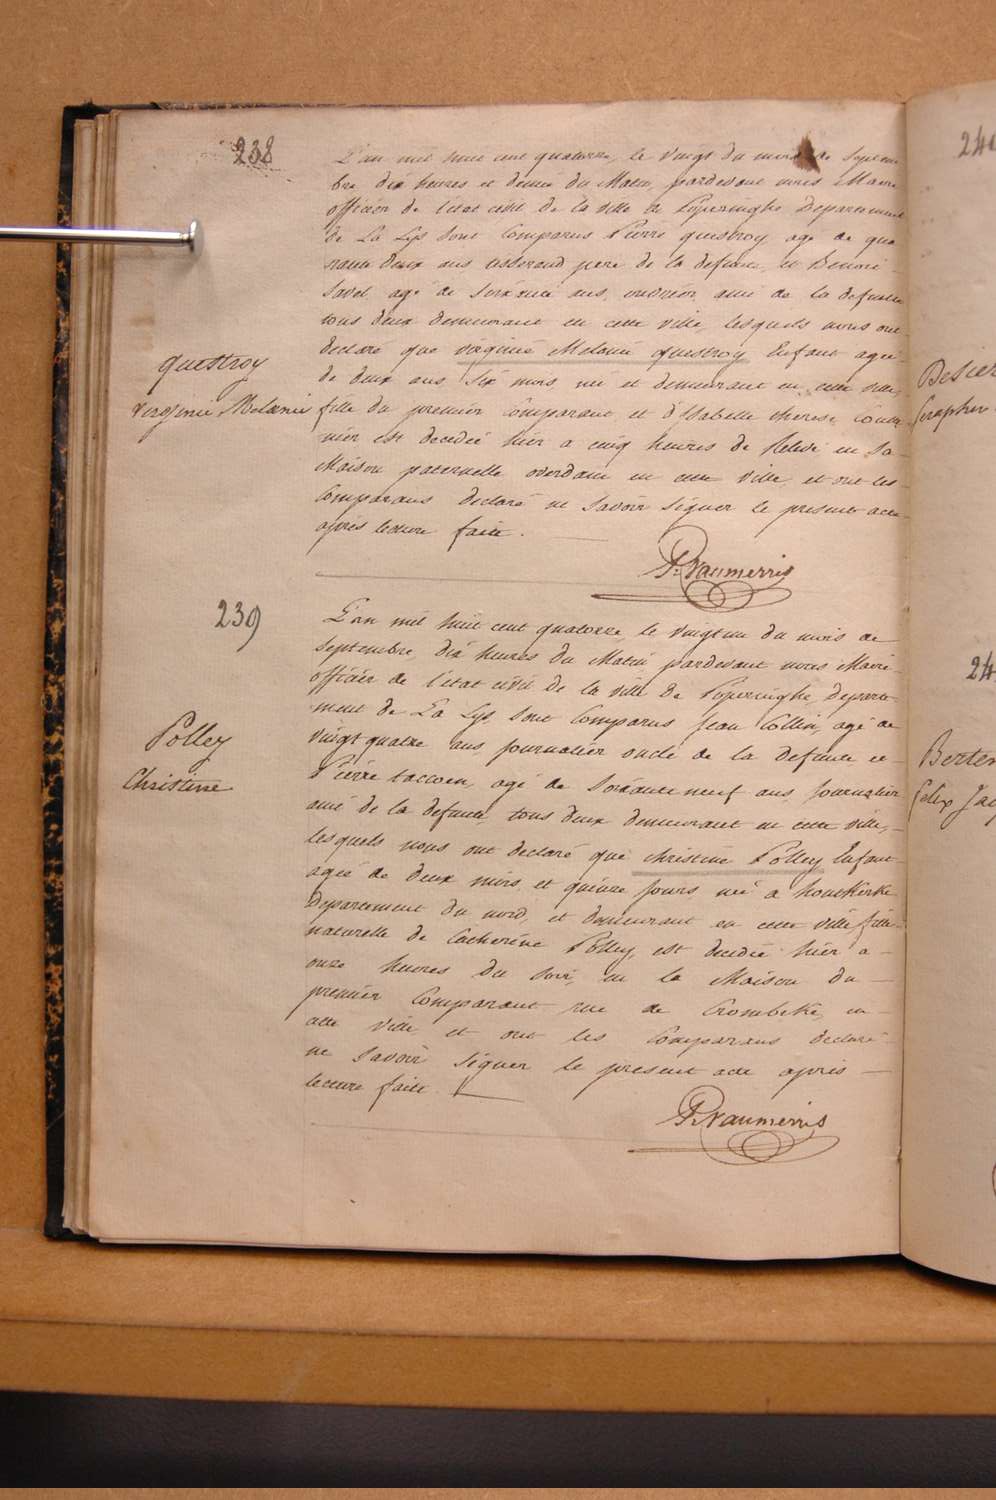 238
L'an mil huit cent quatorze, le vingt du mois de Septem
bre dix heures et demie du Matin, pardevant nous Maire
officier de l'état civil de la ville de Poperinghe Departement
de La Lys Sont Comparus Pierre questroy agé de qua
rante deux ans tisserand pere de la defunte, et Benoit
Savel agé de Soixante ans, ouvrier, ami de la defunte
tous deux demeurant en cette ville, lesquels nous ont
declaré que virginie Melanie questroy Enfant agée
de deux ans Six mois née et demeurant en cette ville,
questroy
virginie Melanie
fille du premier Comparant et d'Isabelle therese
nier est decedée hier a cinq heures de Relevé en Sa
Maison paternelle overdam en cette ville, et ont les
Comparans declaré ne Savoir Signer le present acte
après lecture faite.
P. Vanmerris
239
L'an mil huit cent quatorze, le vingt un du mois de
Septembre, dix heures du Matin, pardevant nous Maire
officier de l'état civil de la ville de Poperinghe, Departe-
ment de La Lys Sont Comparus Jean Collin, agé de
vingt quatre ans Journalier oncle de la defunte et
Polley
Christine
Pierre taccoen, agé de Soixante neuf ans, Journalier
ami de la defunte, tous deux demeurant en cette ville,
lesquels nous ont declaré que christine Polley Enfant
agée de deux mois et quinze Jours née a houtkerke
Departement du nord, et demeurant en cette ville fille
naturelle de Catherine Polley, est decedée hier a
onze heures du Soir, en la Maison du
premier Comparant rue de Crombeke, en
cette ville et ont les Comparans declaré
ne Savoir Signer le present acte après
lecture faite.
P. Vanmerris
240
Besier
Seraphin
24
Berten
felix Jac